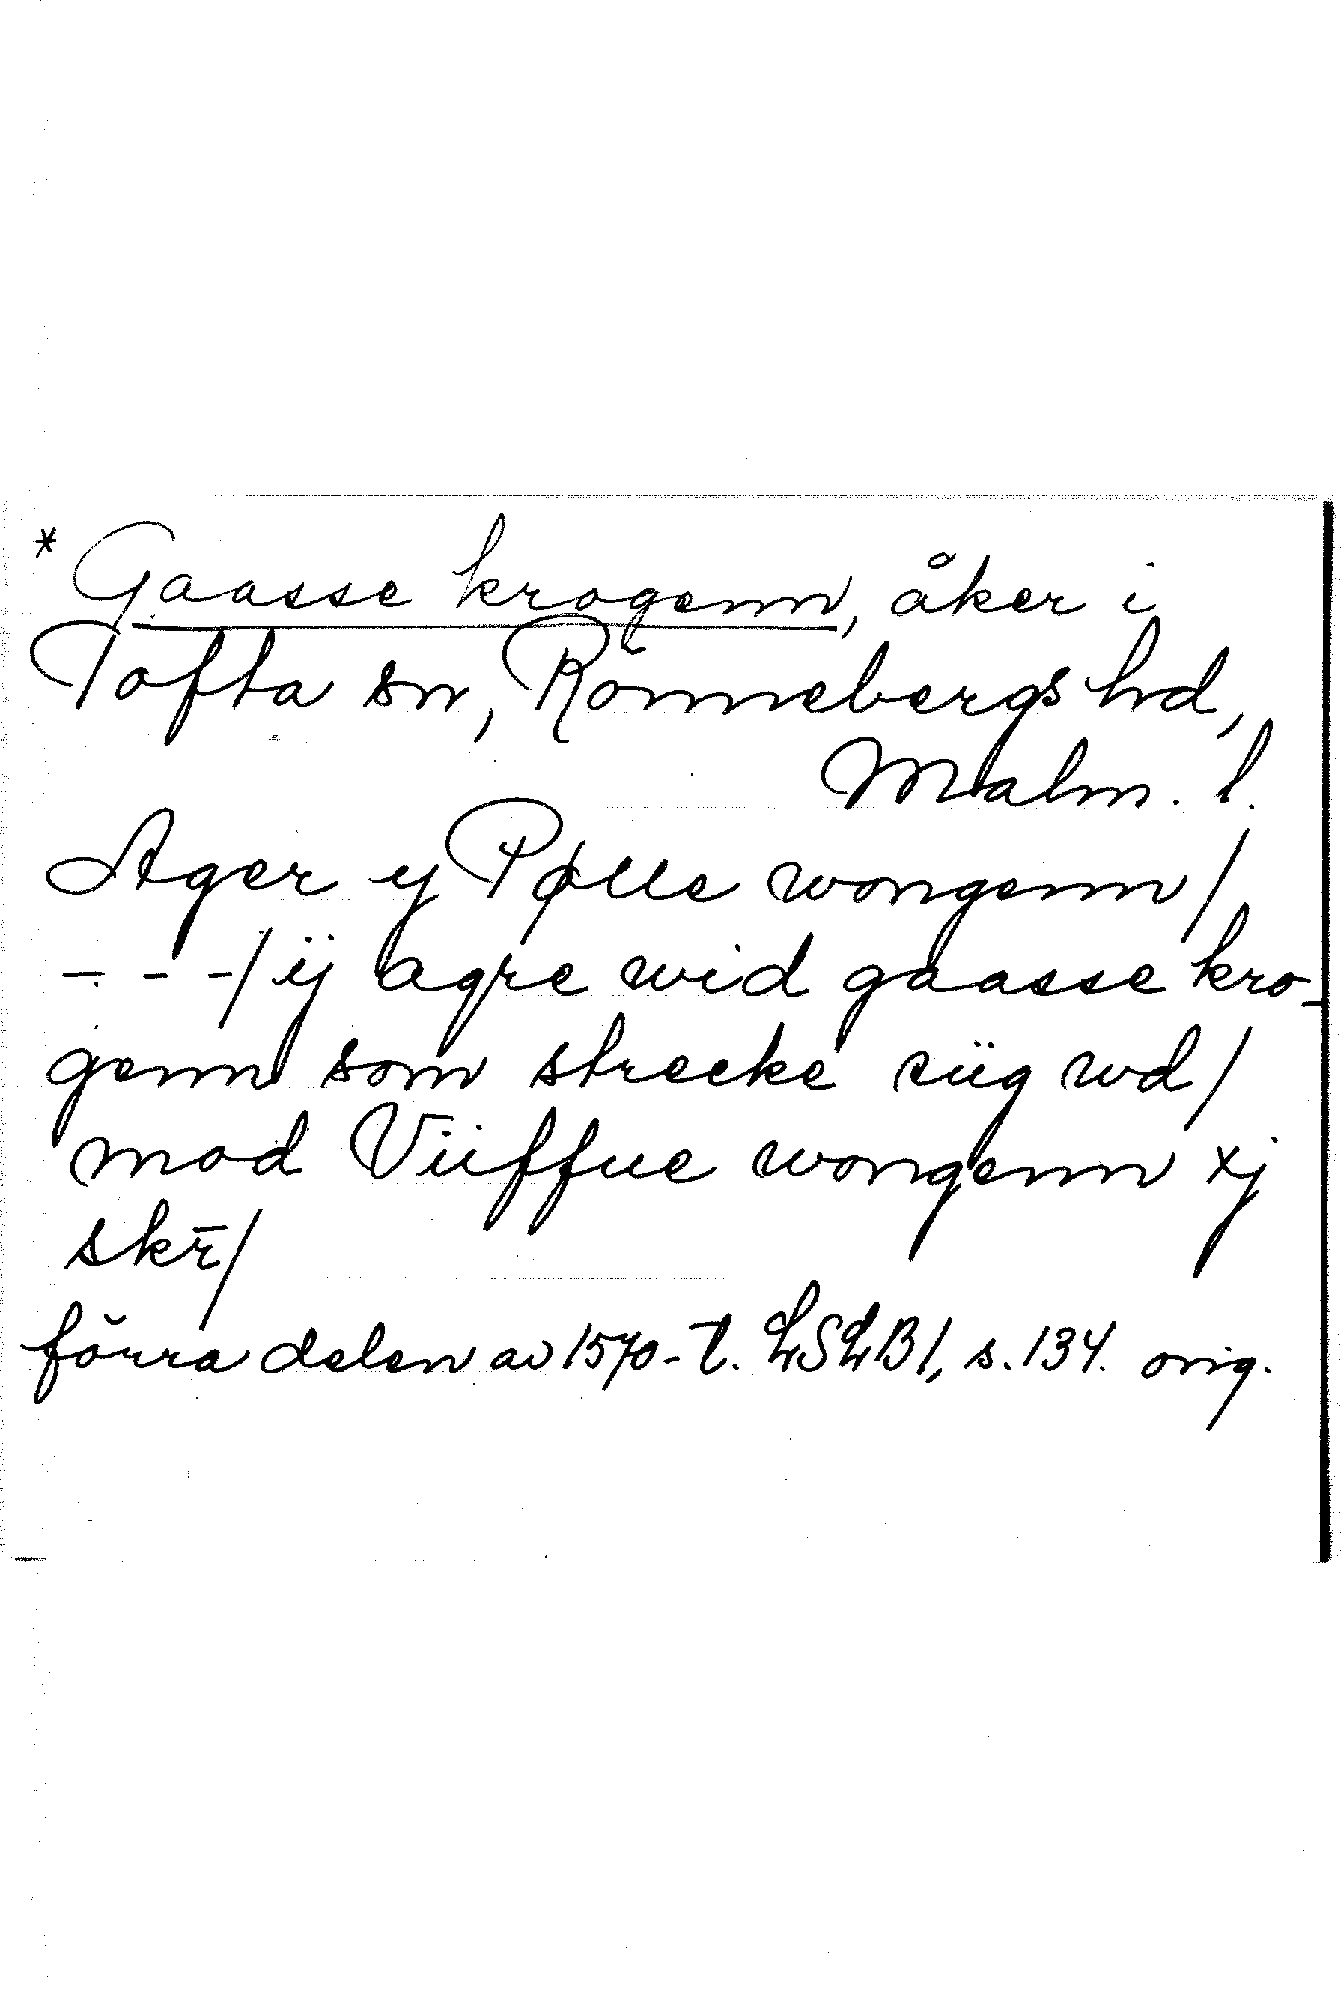 * Gaasse krogenn, åker i
Tofta sn, Rönnebergs hd,
Malm. l.
Ager y Pølle wongenn/
- - -/ ij agre wid gaasse kro-
genn som strecke siig wd/
mod Viiffue wongenn xj
skr̄/
förra delen av 1570-t. LSLB1, s. 134. orig.